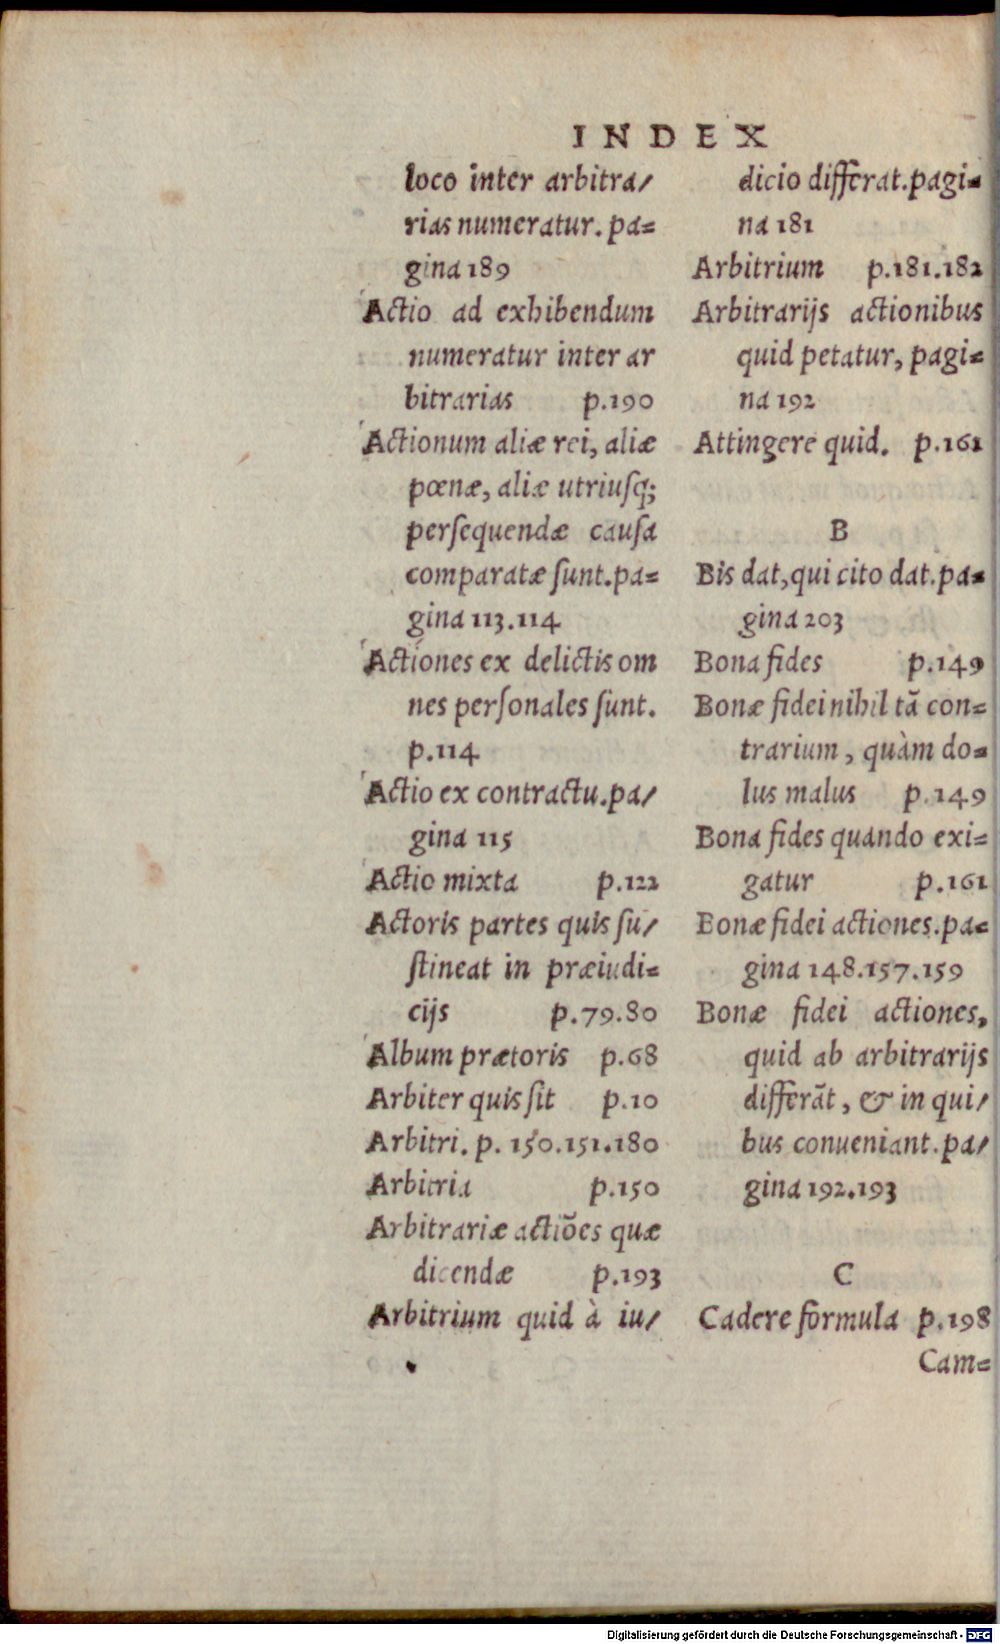 INDEX
loco inter arbitra/
rias numeratur. pa=
gina 189
Actio ad exhibendum
numeratur inter ar
bitrarias p.190
Actionum aliæ rei, aliæ
pœnæ, aliæ utriusq;
persequendæ causa
comparatæ sunt.pa=
gina 113.114
Actiones ex delictis om
nes personales sunt.
p.114
Actio ex contractu.pa/
gina 115
Actio mixta p.122
Actoris partes quis su/
stineat in præiudi=
cijs p.79.80
Album prætoris p.68
Arbiter quis sit p.10
Arbitri. p. 150.151.180
Arbitria p.150
Arbitrariæ actiões quæ
dicendæ p.193
Arbitrium quid à iu/
dicio differat.pagi=
na 181
Arbitrium p.181.182
Arbitrarijs actionibus
quid petatur, pagi=
na 192
Attingere quid. p.161
B
Bis dat,qui cito dat.pa=
gina 203
Bona fides p.149
Bonæ fidei nihil tã con=
trarium, quàm do=
lus malus p.149
Bona fides quando exi=
gatur p.161
Bonæ fidei actiones.pa=
gina 148.157.159
Bonæ fidei actiones,
quid ab arbitrarijs
differãt, & in qui/
bus conueniant.pa/
gina 192.193
C
Cadere formula p.198
Cam=
Digitalisierung gefördert durch die Deutsche Forschungsgemeinschaft - DFG